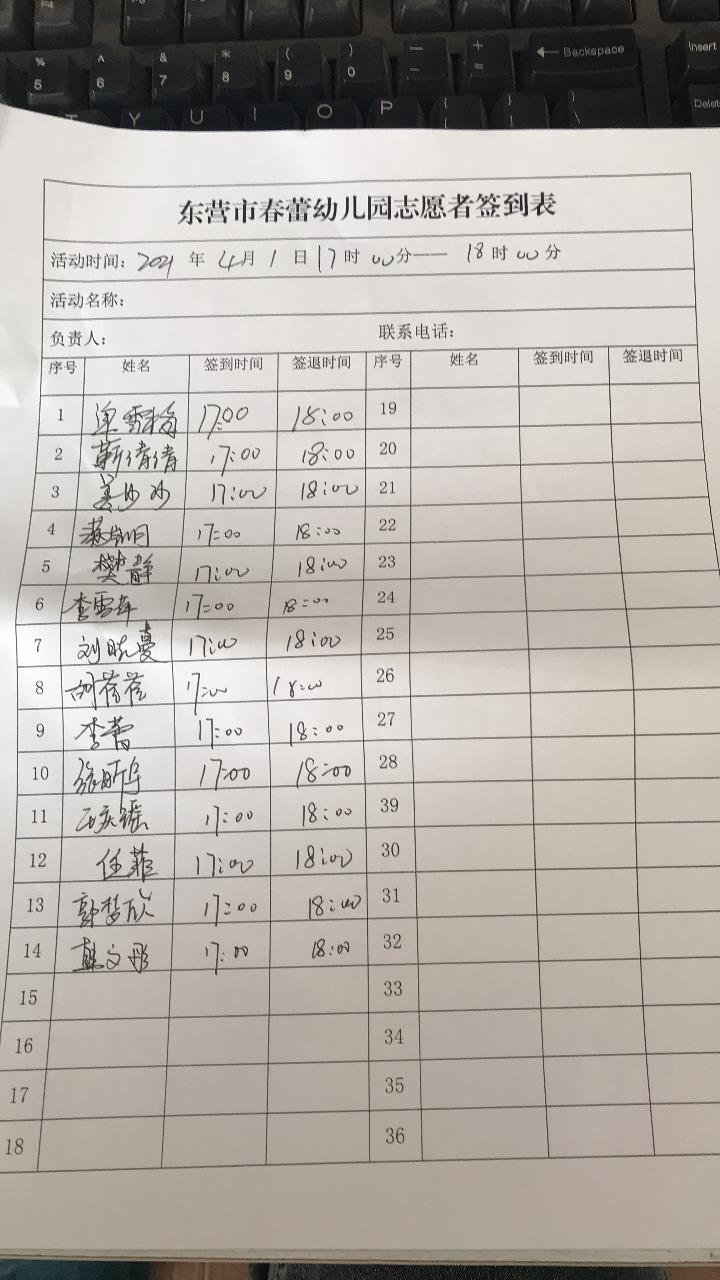 % 5
^ 6
& 7
* 8
( 9
) 0
— -
+ =
← Backspace
Insert
T Y U I O P { [ } ] | \
Delet
东营市春蕾幼儿园志愿者签到表
活动时间: 2021 年 4月 1 日 17 时 00分—— 18 时 00 分
活动名称:
负责人: 联系电话:
序号 姓名 签到时间 签退时间 序号 姓名 签到时间 签退时间
1 17:00 18:00 19
2 靳倩倩 17:00 18:00 20
3 姜沙沙 17:00 18:00 21
4 17:00 18:00 22
5 樊静 17:00 18:00 23
6 17:00 18:00 24
7 刘晓曼 17:00 18:00 25
8 胡蓓蓓 17:00 18:00 26
9 李蕾 17:00 18:00 27
10 17:00 18:00 28
11 17:00 18:00 39
12 任菲 17:00 18:00 30
13 郭梦欣 17:00 18:00 31
14 韩文彤 17:00 18:00 32
15 33
16 34
17 35
18 36